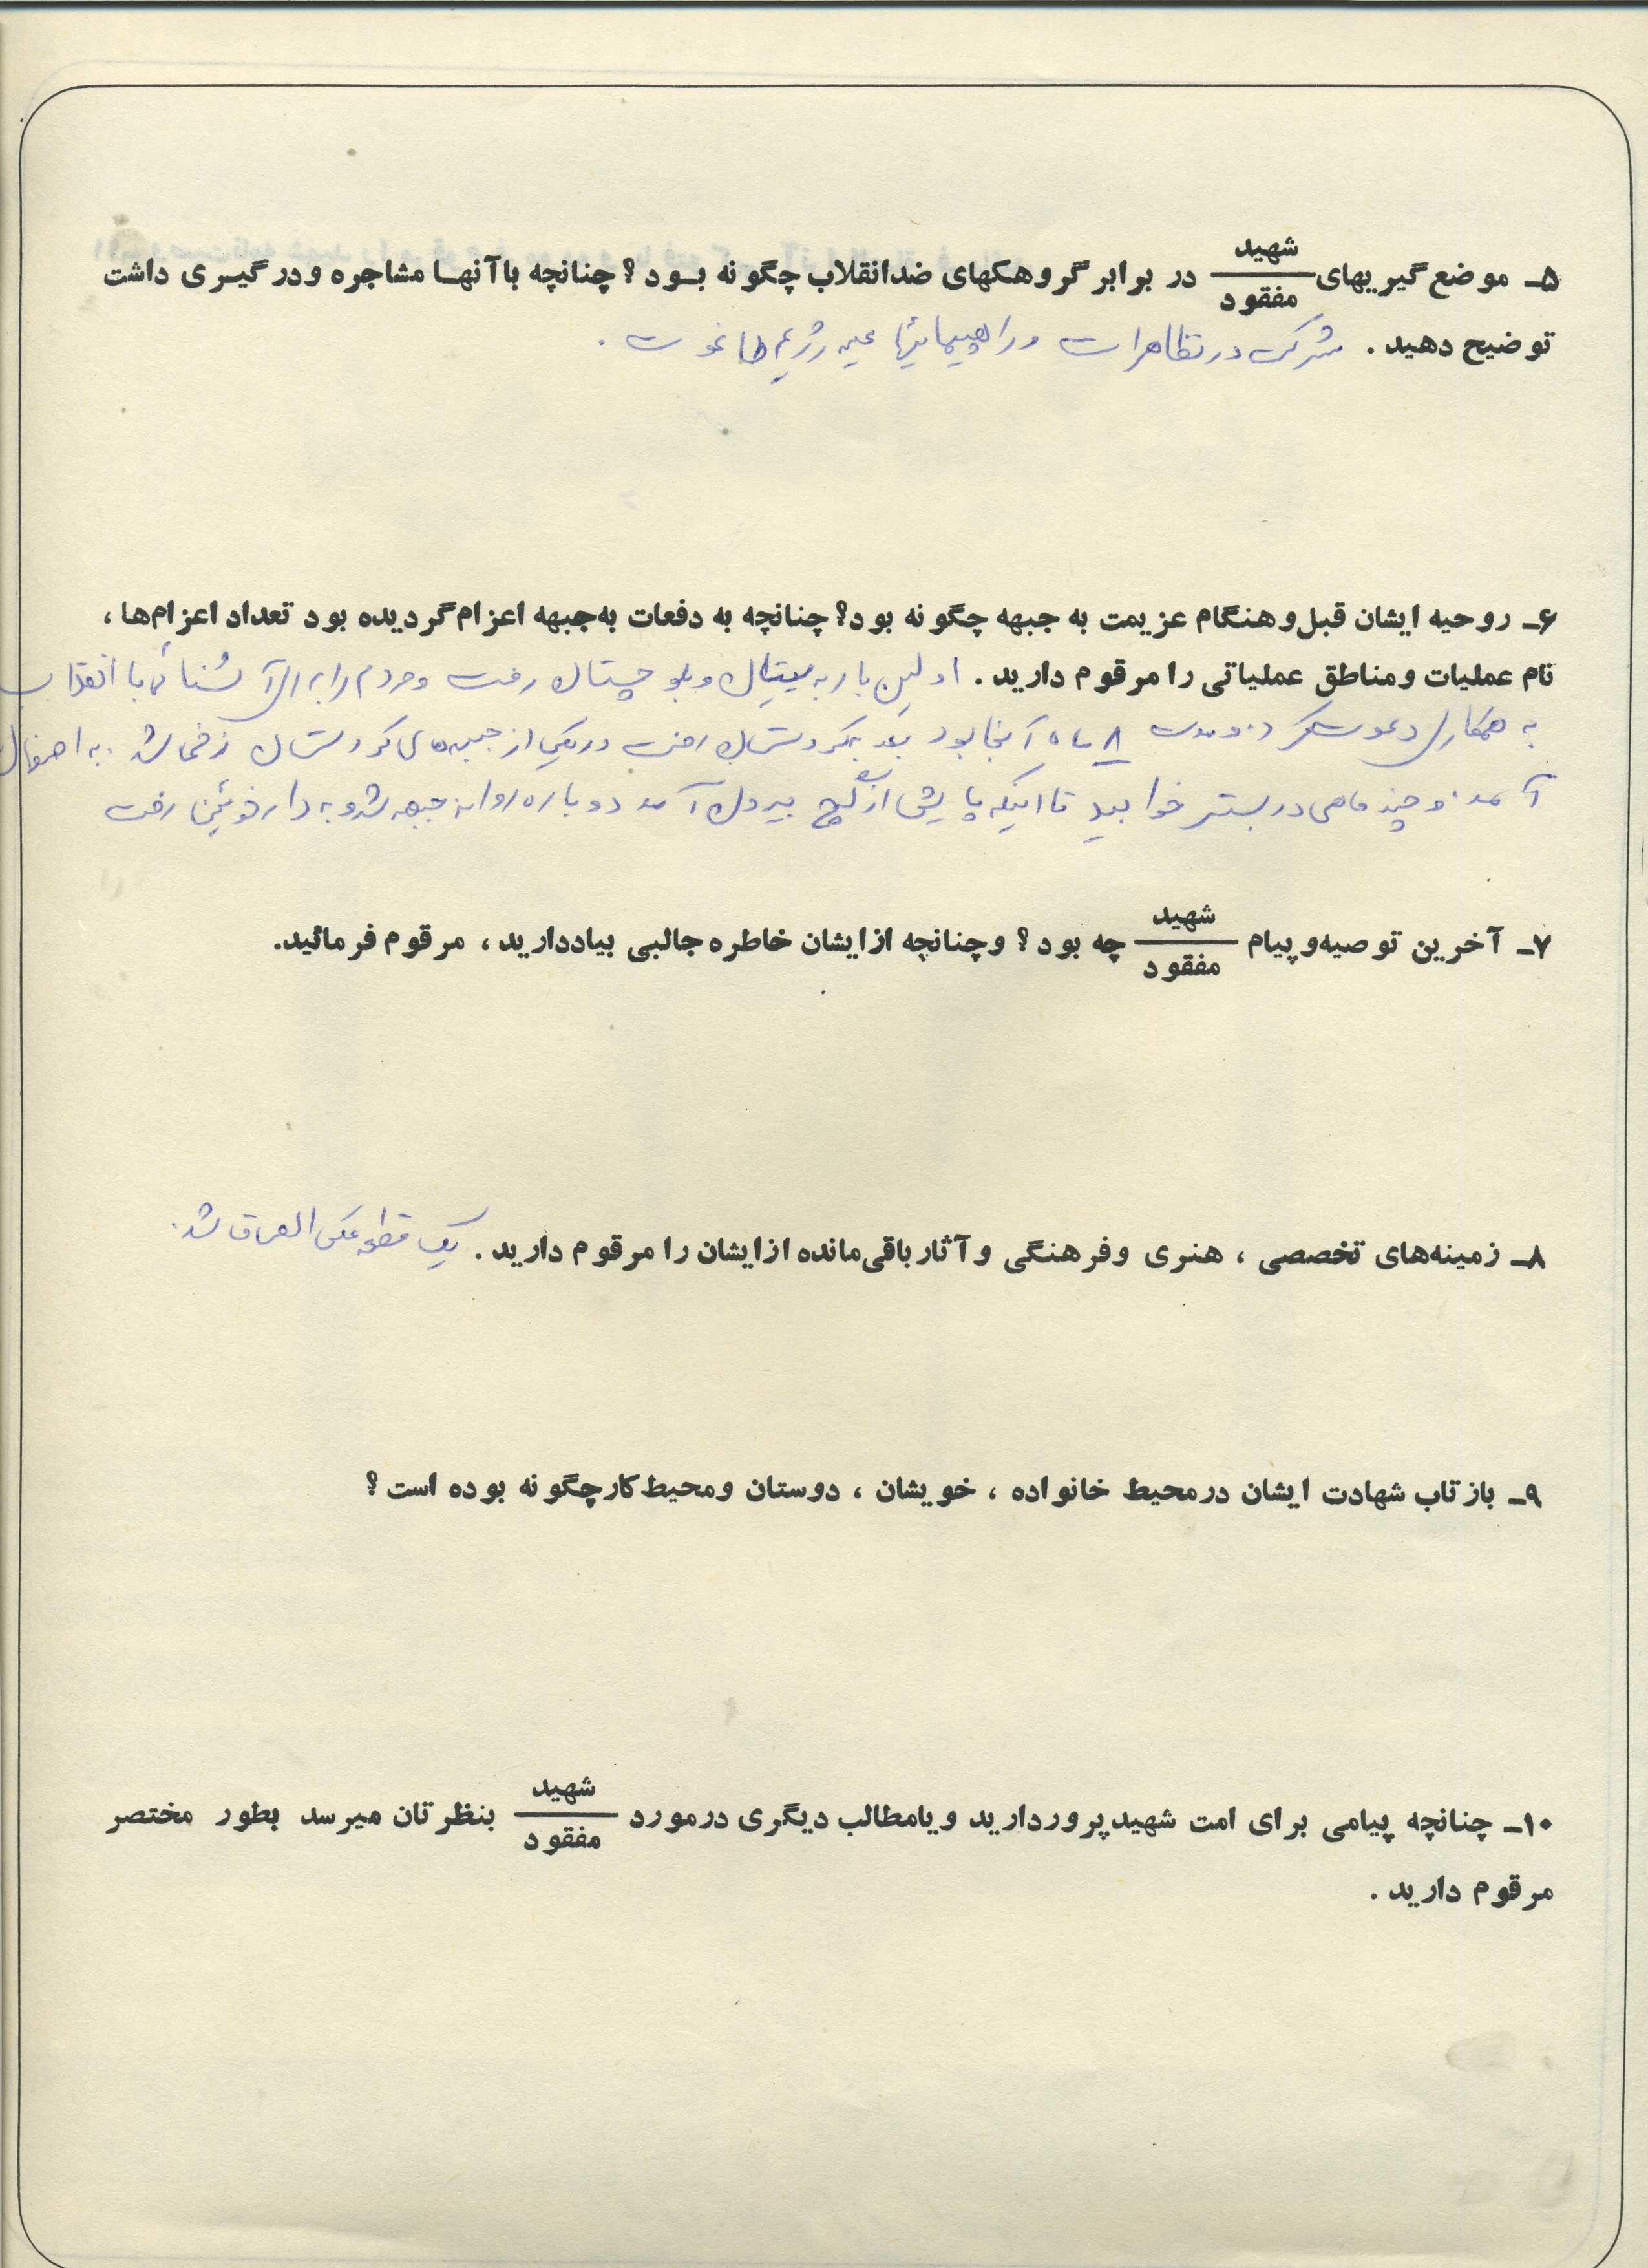 ۵ـ موضع گیریهای شهید/مفقود در برابر گروهکهای ضدانقلاب چگونه بود؟ چنانچه باآنها مشاجره ودرگیری داشت
توضیح دهید. شرکت در تظاهرات و راهپیمائیها علیه رژیم طاغوت.
۶ـ روحیه ایشان قبل وهنگام عزیمت به جبهه چگونه بود؟ چنانچه به دفعات به‌جبهه اعزام‌گردیده بود تعداد اعزام‌ها،
نام عملیات ومناطق عملیاتی را مرقوم دارید. اولین بار به سیستان و بلوچستان رفت و مردم را برای آشنائی با انقلاب
به همکاری دعوت میکرد و مدت ۸ ماه آنجا بود بعد به کردستان رفت در یکی از جبهه‌های کردستان زخمی شد. به اصفهان
آمد و چند ماهی در بستر خوابید تا اینکه پایش از گچ بیرون آمد دوباره روانه جبهه شد و به دارخوئین رفت
۷ـ آخرین توصیه‌وپیام شهید/مفقود چه بود؟ وچنانچه ازایشان خاطره جالبی بیاددارید، مرقوم فرمائید.
۸ـ زمینه‌های تخصصی، هنری وفرهنگی وآثارباقی‌مانده ازایشان را مرقوم دارید. یک قطعه عکس الصاق شد.
۹ـ بازتاب شهادت ایشان درمحیط خانواده، خویشان، دوستان ومحیط کارچگونه بوده است؟
۱۰ـ چنانچه پیامی برای امت شهیدپروردارید ویامطالب دیگری درمورد شهید/مفقود بنظرتان میرسد بطور مختصر
مرقوم دارید.